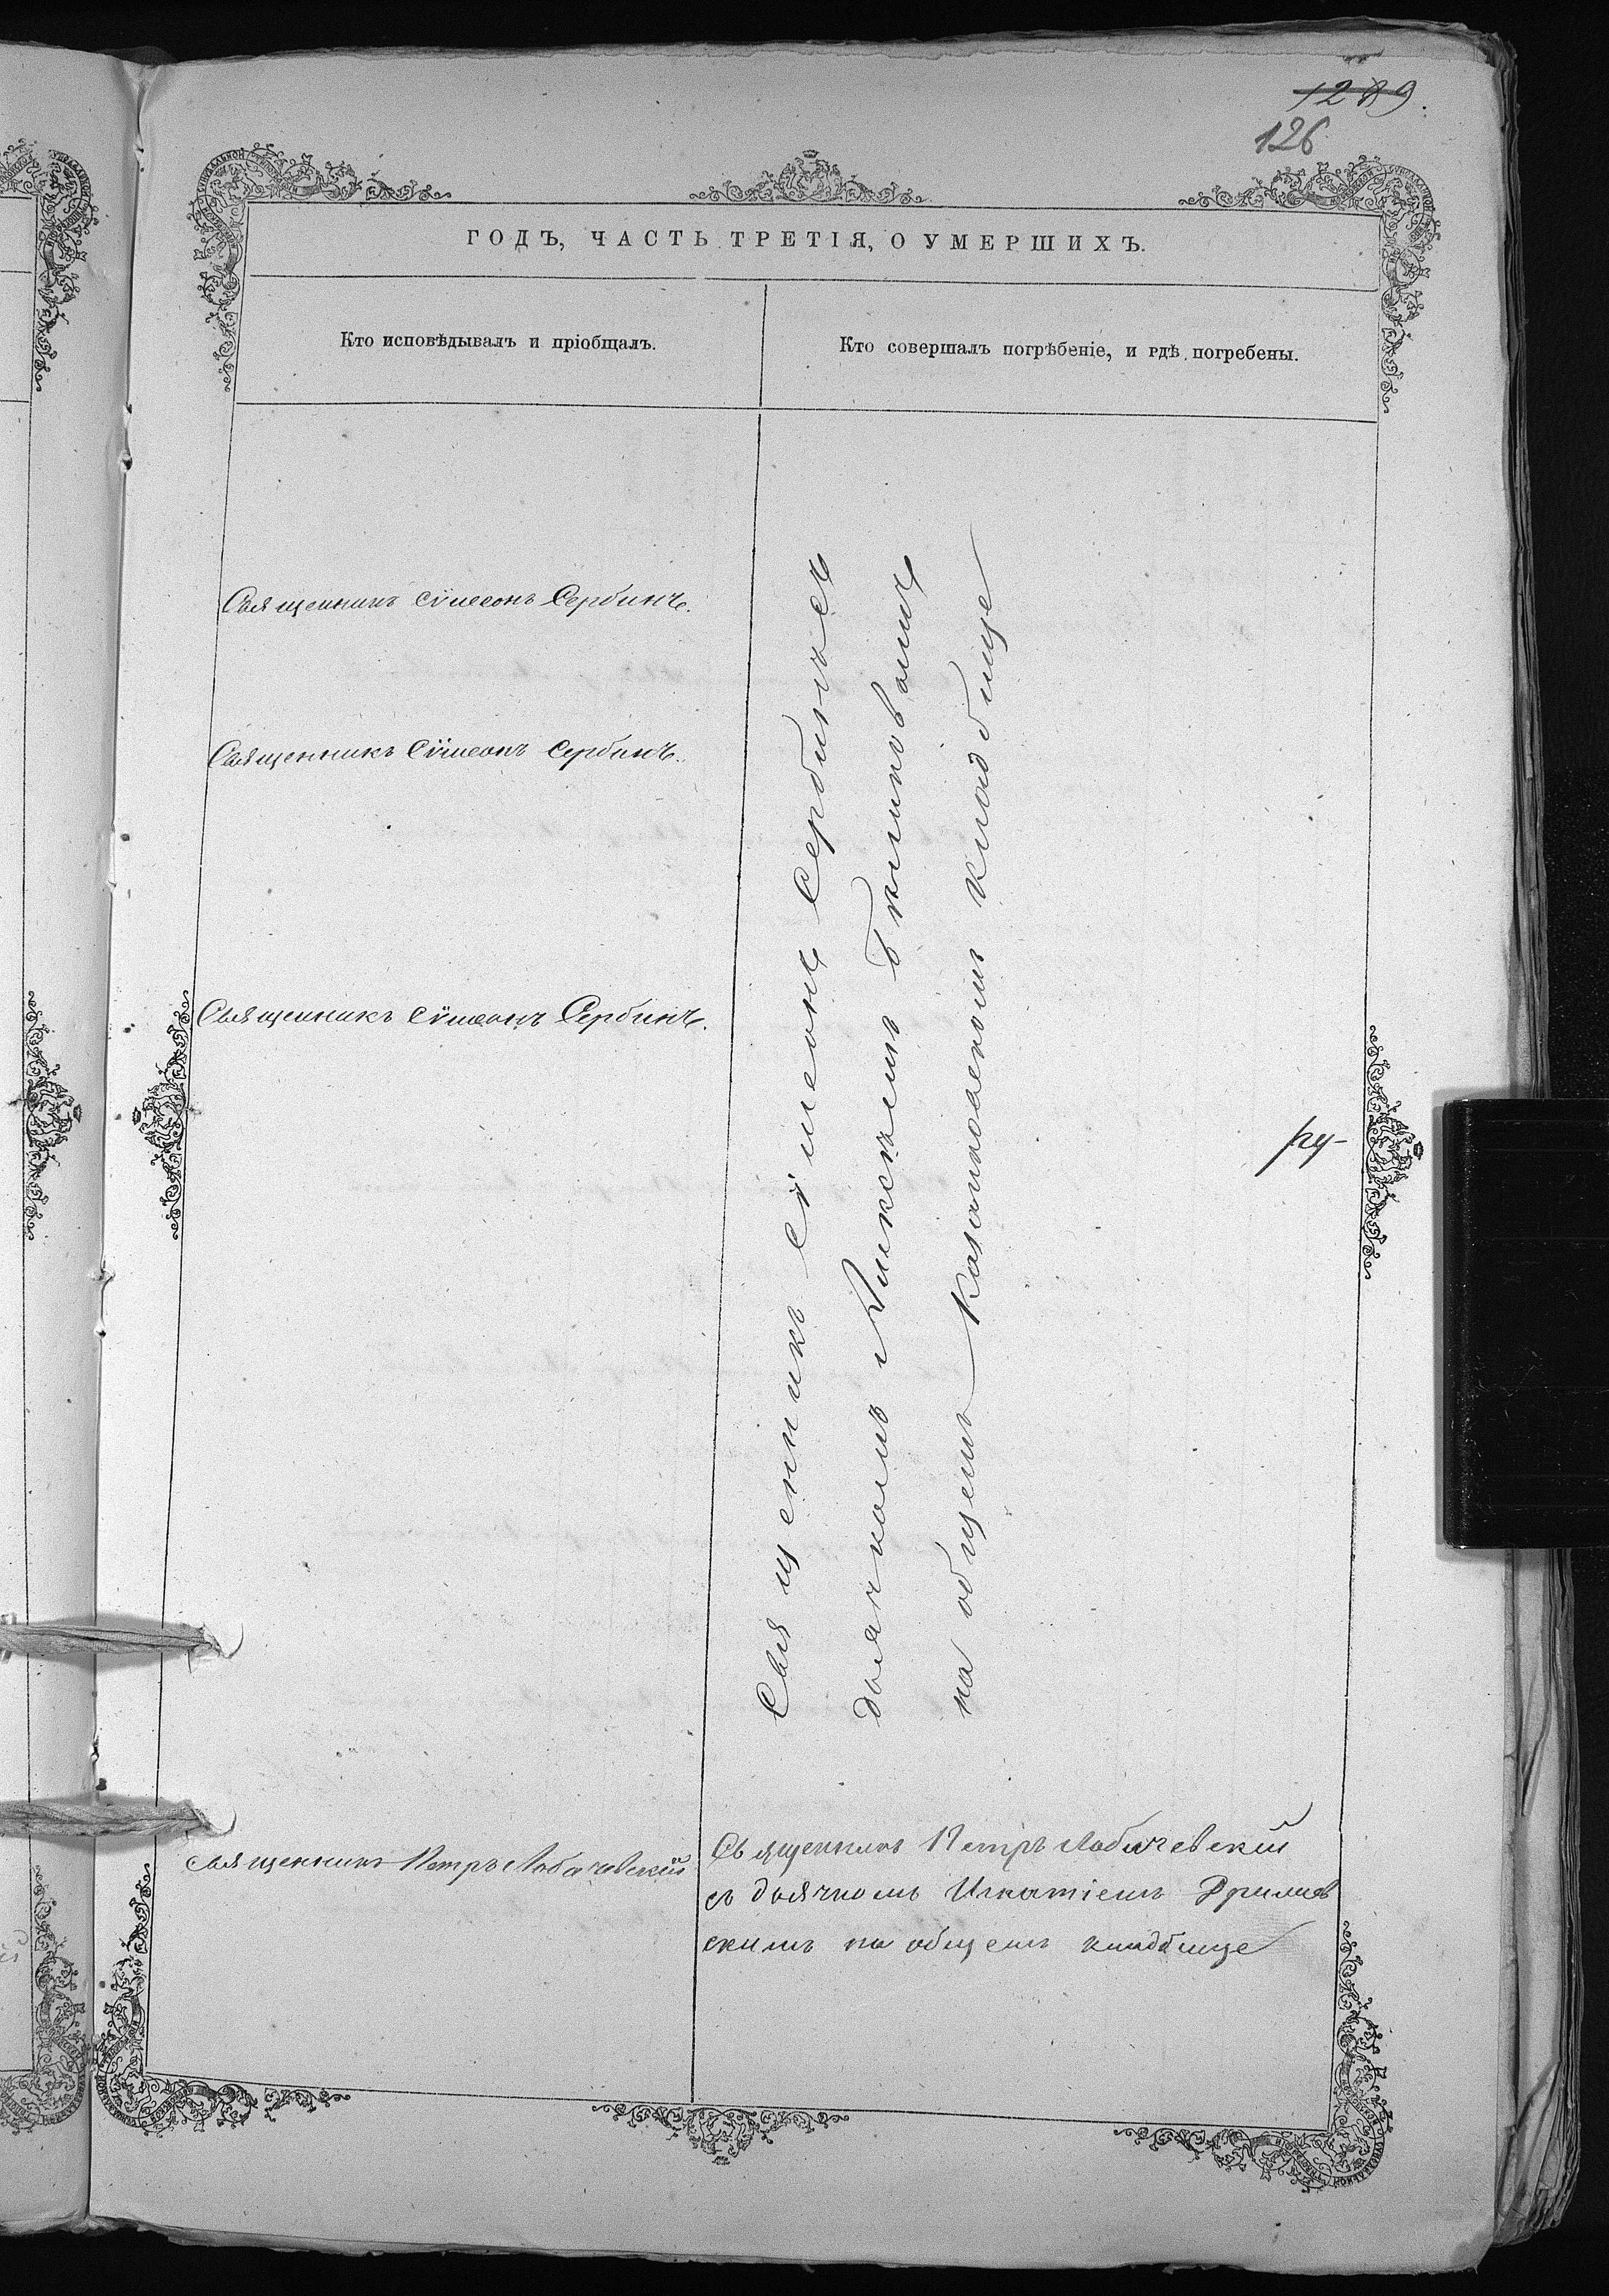 1289.
126
ГОДЪ, ЧАСТЬ ТРЕТІЯ, О УМЕРШИХЪ.
Кто исповѣдывалъ и пріобщалъ.
Кто совершалъ погрѣбеніе, и гдѣ погребены.
Священникъ Сѵмеонъ Сербинъ.
Священникъ Сѵмеонъ Сербинъ.
Священникъ Сѵмеонъ Сербинъ.
Священникъ Сѵмеонъ Сербинъ съ
дьячкомъ
на общемъ кладбище
ру-
Священникъ Петръ Лобачевскій
Священникъ Петръ Лобачевскій
съ дьячкомъ Игнатіемъ
скимъ на общемъ кладбище